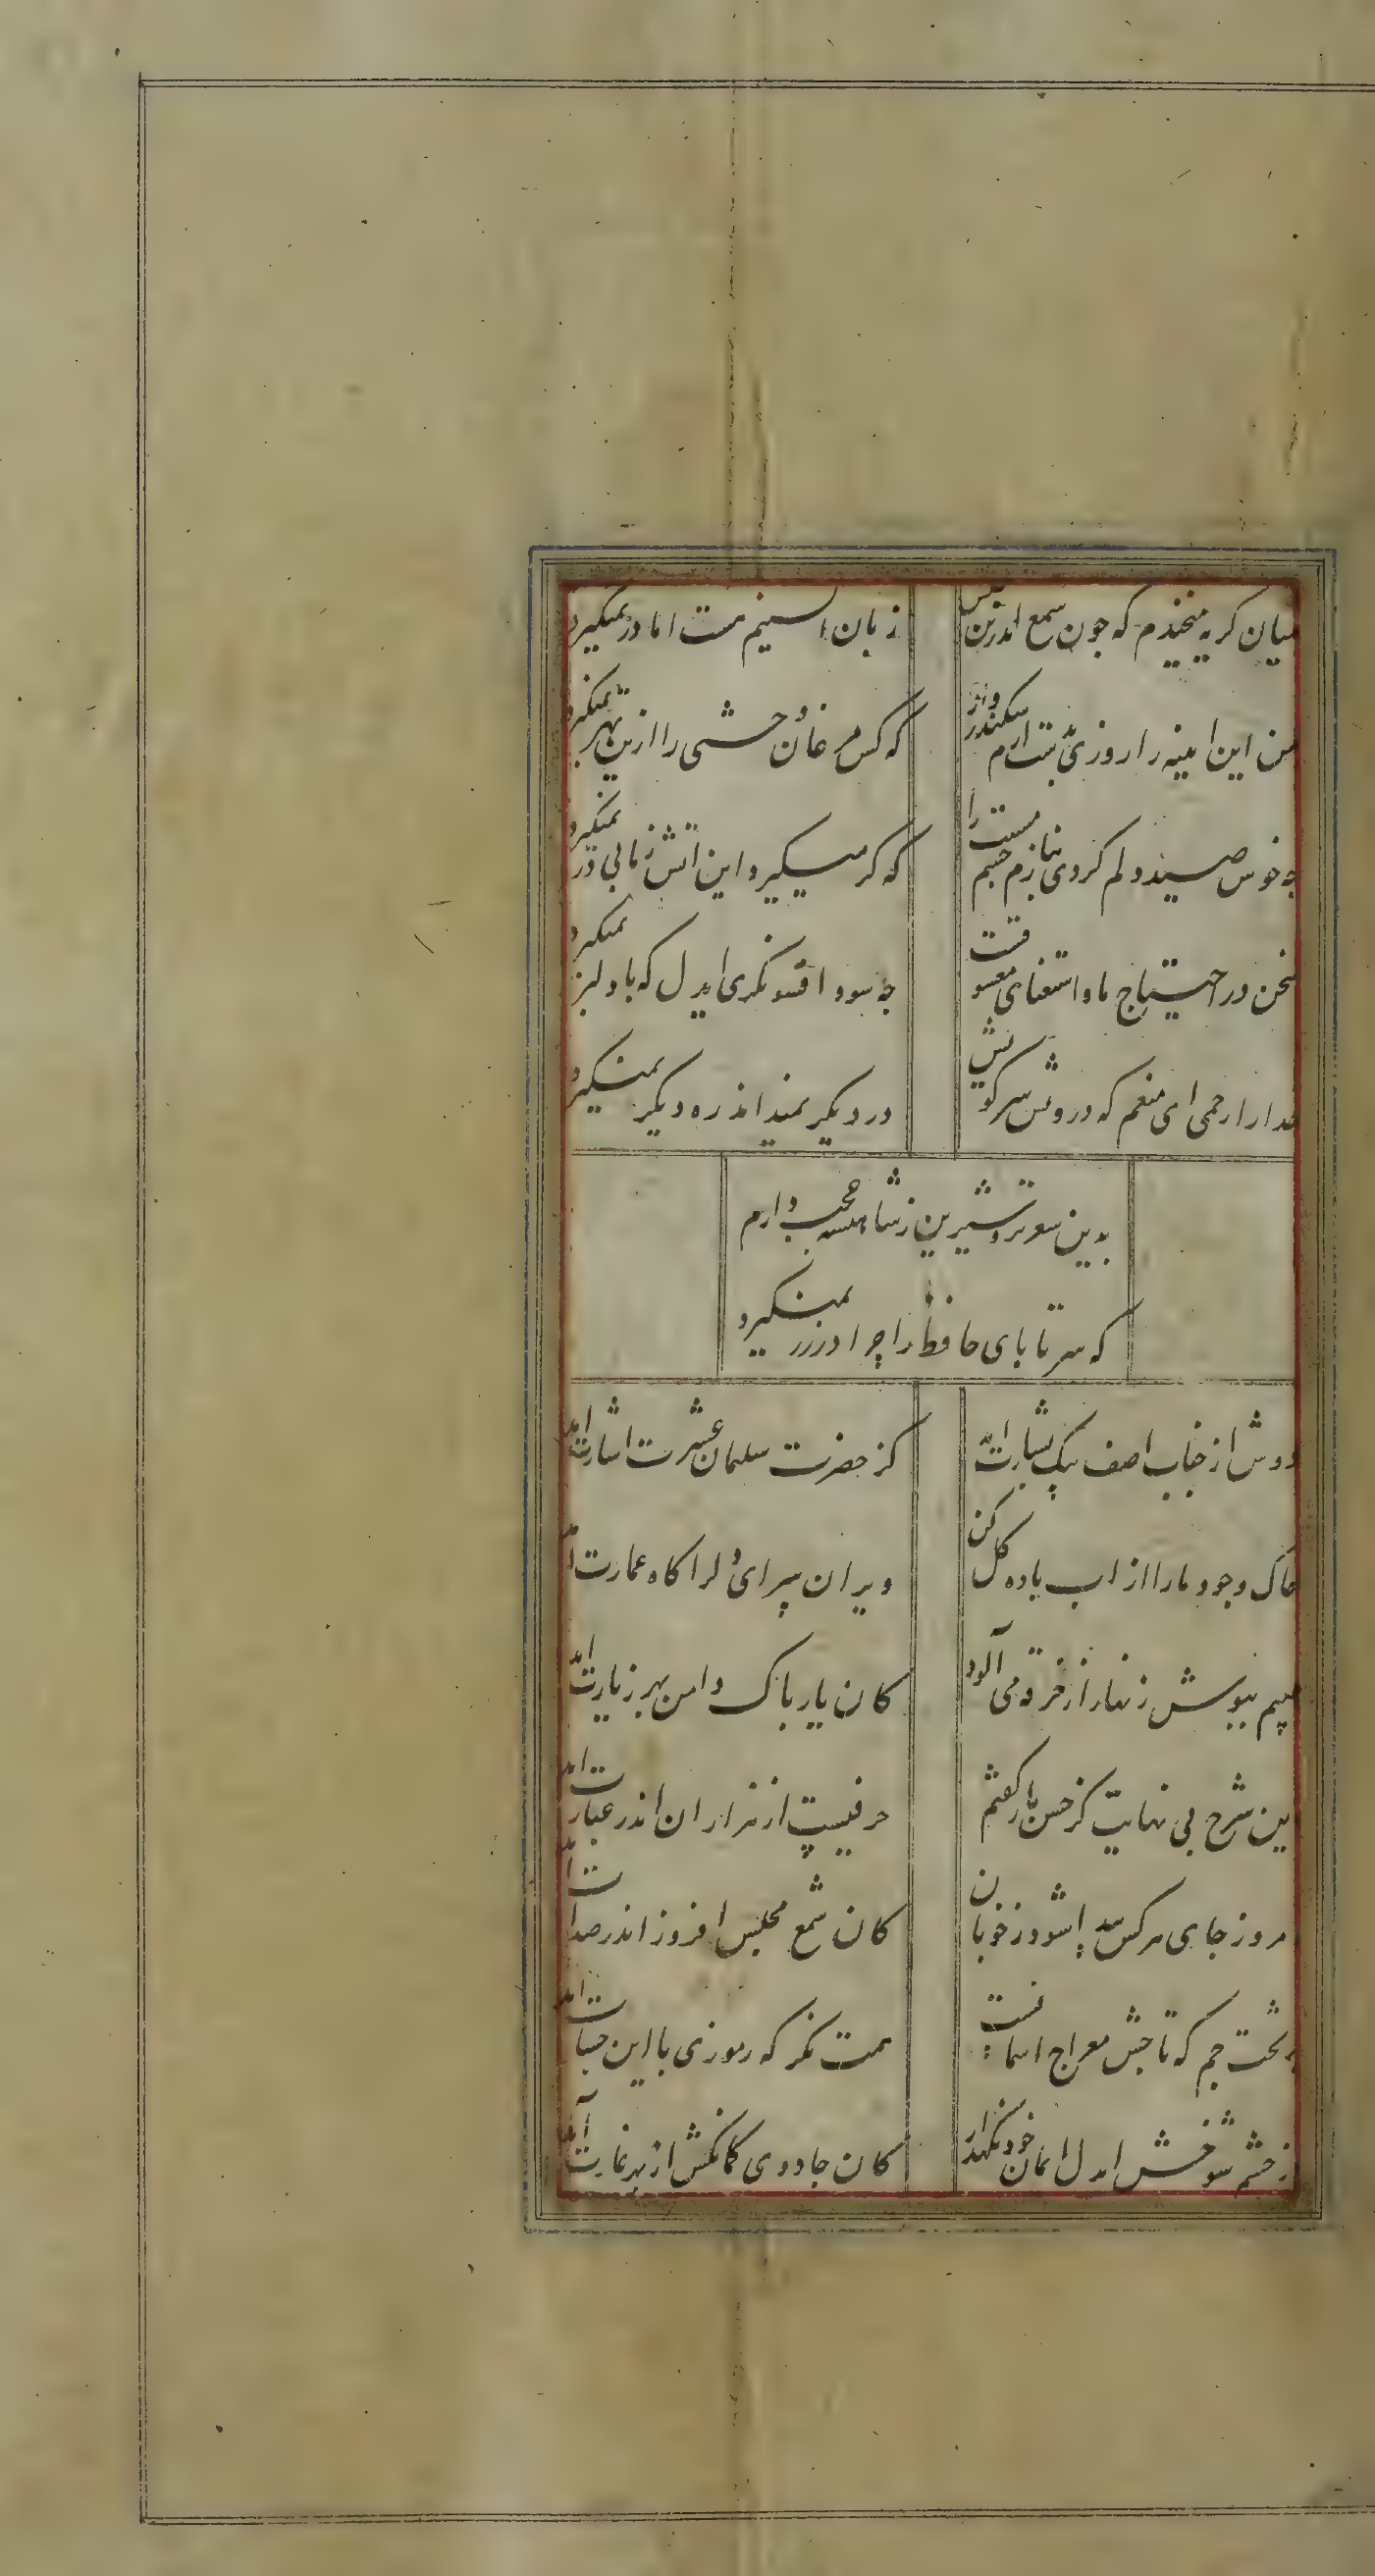 میان کریه میخندم که چون شمع اندرین مجلس
زبان اتشینم هست اما در نمیکیرد
من این اینه را روزی بدست ارم سکندروار
که کس مرغان وحشی را ازین بهتر نمیکیرد
چه خوش صید دلم کردی بنازم چشم مست را
سخن در احتیاج ما و استغنای معشوقست
چه سود افسونکری ایدل که با دلبر نمیکیرد
خدا را رحمی ای منعم که درویش سر کویش
در دیکر نمیداند ره دیکر نمیکیرد
بدین شعر تر و شیرین ز شاهنشه عجب دارم
که سر تا پای حافظ را چرا در زر نمیکیرد
دوش از جناب اصف پیک بشارت امد
کز حضرت سلیمان عشرت اشارت امد
خاک وجود ما را از اب باده کل کن
ویران سرای دل را کاه عمارت امد
عیبم بپوش زنهار از خرقه می آلود
کان یار پاک دامن بهر زیارت امد
این شرح بی نهایت کز حسن یار کفتم
حرفیست از هزاران اندر عبارت امد
امروز جای هر کس پیدا شود ز خوبان
کان شمع مجلس افروز اندر صدارت امد
بر تخت جم که تاجش معراج اسمانست
همت نکر که موری با این حقارت امد
از چشم شوخش ایدل ایمان خود نکهدار
کان جادوی کمانکش از بهر غارت آمد